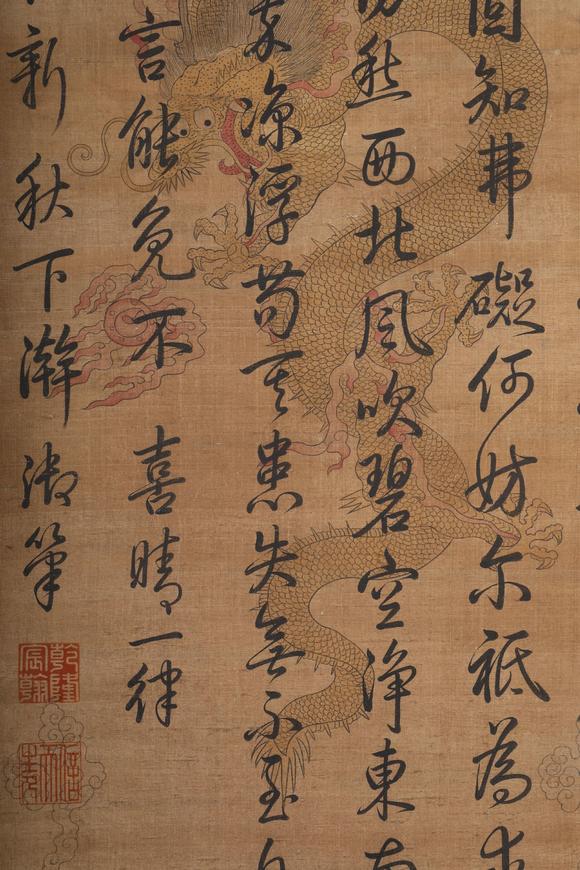 知弗礙何妨尔祗為
西北風吹碧空淨東
涼浮苟其患失無不至
言能免不 喜晴一律
新秋下澣御筆
乾隆宸翰